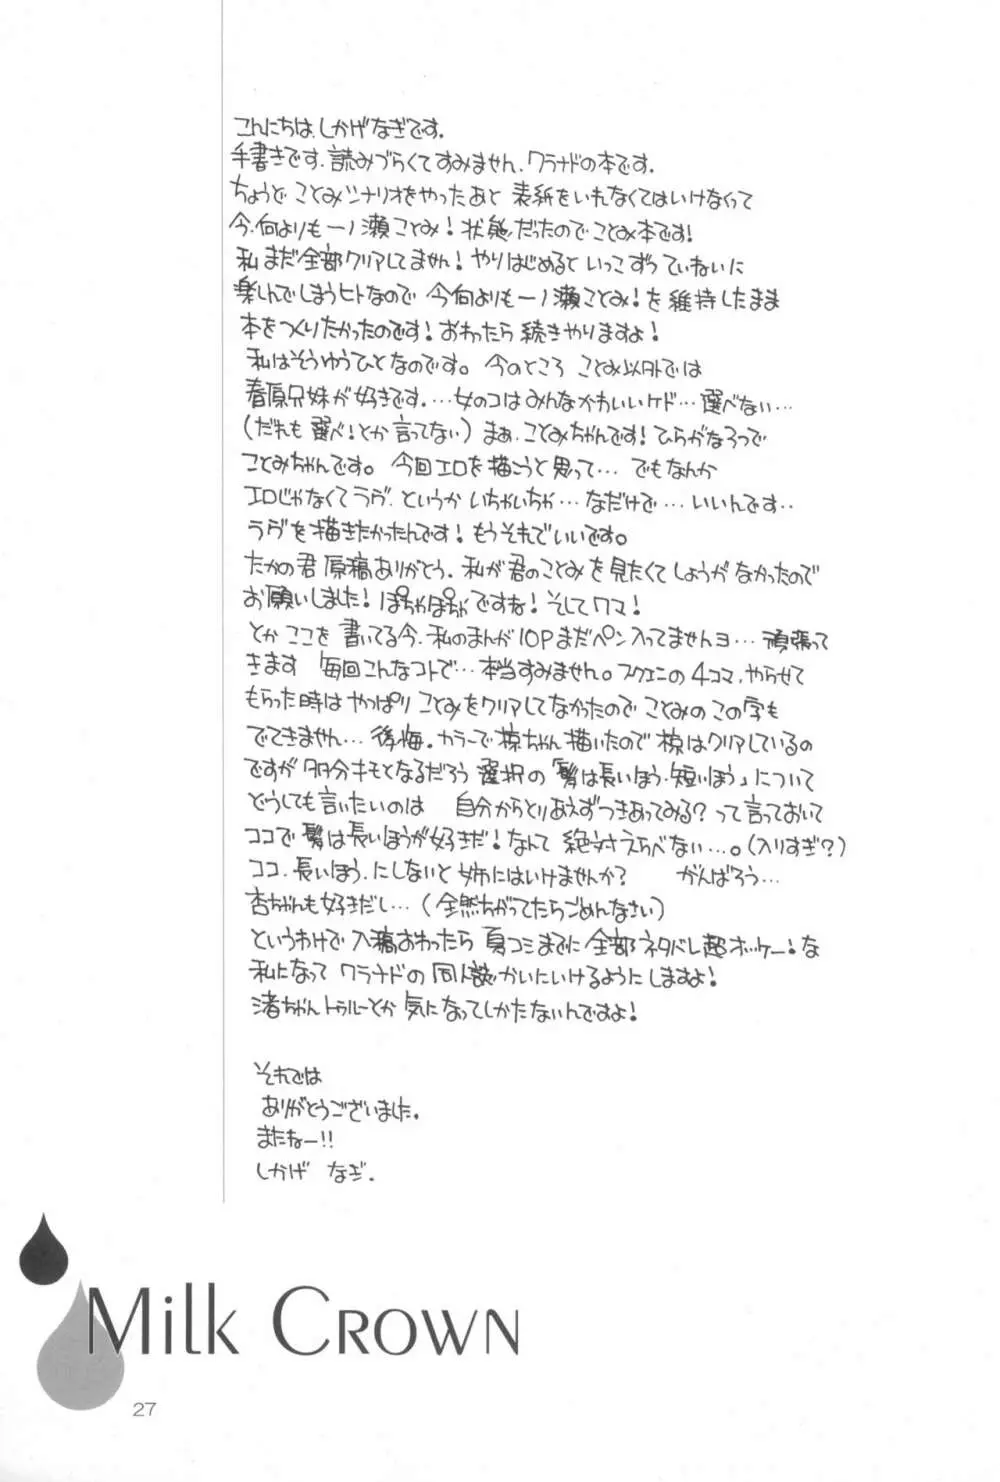 こんにちは、しかげなぎです。
手書きです.読みづらくてすみません、クラナドの本です.
ちょうど ことみシナリオをやったあと 表紙をいれなくてはいけなくって
今、何よりも一ノ瀬ことみ!状態だったので ことみ本です!
私 まだ全部クリアしてません! やりはじめると いっこずつていねいに
楽しんでしまうヒトなので 今何よりも一ノ瀬ことみ!を 維持したまま
本をつくりたかったのです! おわったら 続きやりますよ!
私はそうゆうひとなのです。 今のところ ことみ以外では
春原兄妹が好きです.…女のコはみんなかわいいケド… 選べない…
(だれも 選べ!とか言ってない) まぁ、ことみちゃんです! ひらがなみっつで
ことみちゃんです。 今回エロを描こうと思って… でもなんか
エロじゃなくてラヴ. というか いちゃいちゃ… なだけで… いいんです‥
ラヴを描きたかったんです! もうそれでいいです。
たかの君 原稿ありがとう. 私が君のことみを見たくてしょうがなかったので
お願いしました! ぽちゃぽちゃですね! そしてクマ!
とか ここを 書いてる今、私のまんが10Pまだペン入ってませんヨ… 頑張って
きます 毎回こんなコトで… 本当すみません。スクエニの4コマ、やらせて
もらった時は やっぱり ことみをクリアしてなかったので ことみのこの字も
でてきません… 後悔. カラーで椋ちゃん描いたので 椋はクリアしているの
ですが 多分キモとなるだろう 選択の「髪は長いほう・短いほう」について
どうしても言いたいのは 自分からとりあえずつきあってみる? って言っておいて
ココで 髪は長いほうが好きだ! なんて 絶対えらべない…。(入りすぎ?)
ココ、長いほう、にしないと 姉にはいけませんか? がんばろう…
杏ちゃんも好きだし… (全然ちがってたらごめんなさい)
というわけで 入稿おわったら 夏コミまでに 全部ネタバレ超オッケー!な
私になって クラナドの 同人誌かいにいけるようにしますよ!
渚ちゃん トゥルーとか 気になってしかたないんですよ!
それでは
ありがとうございました.
またねー!!
しかげ なぎ.
Milk CROWN
27